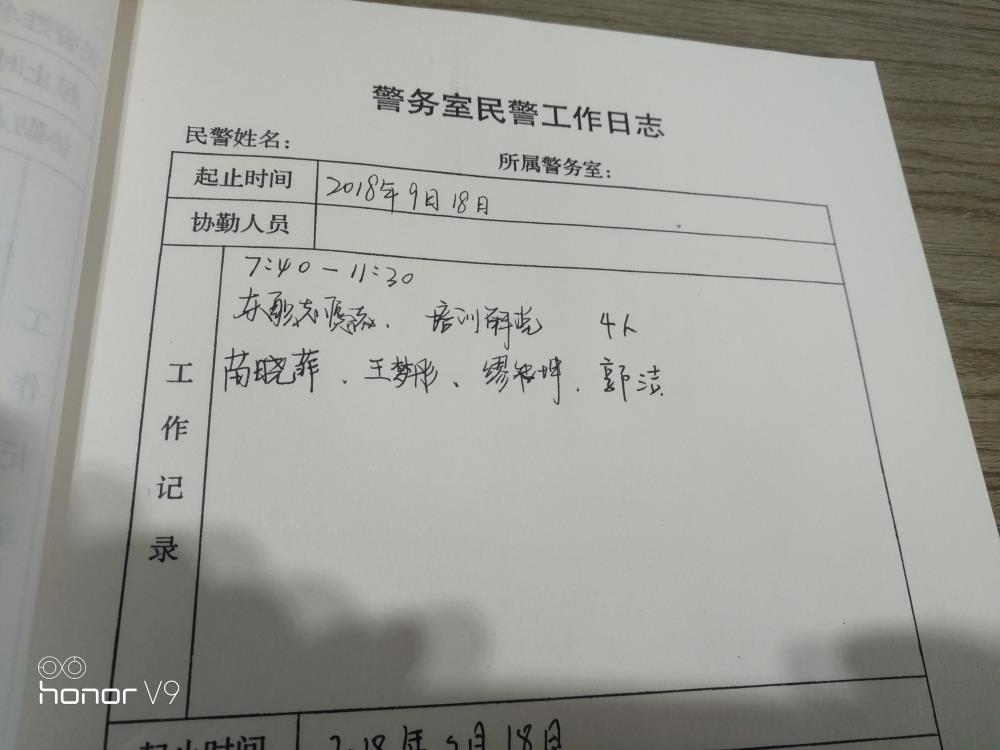 警务室民警工作日志
民警姓名：
所属警务室：
起止时间 2018年9月18日
协勤人员
工作记录
7:40－11:30
培训 4人
苗晓菲、王梦彤、缪 坤、郭洁
起止时间 2018年9月18日
honor V9